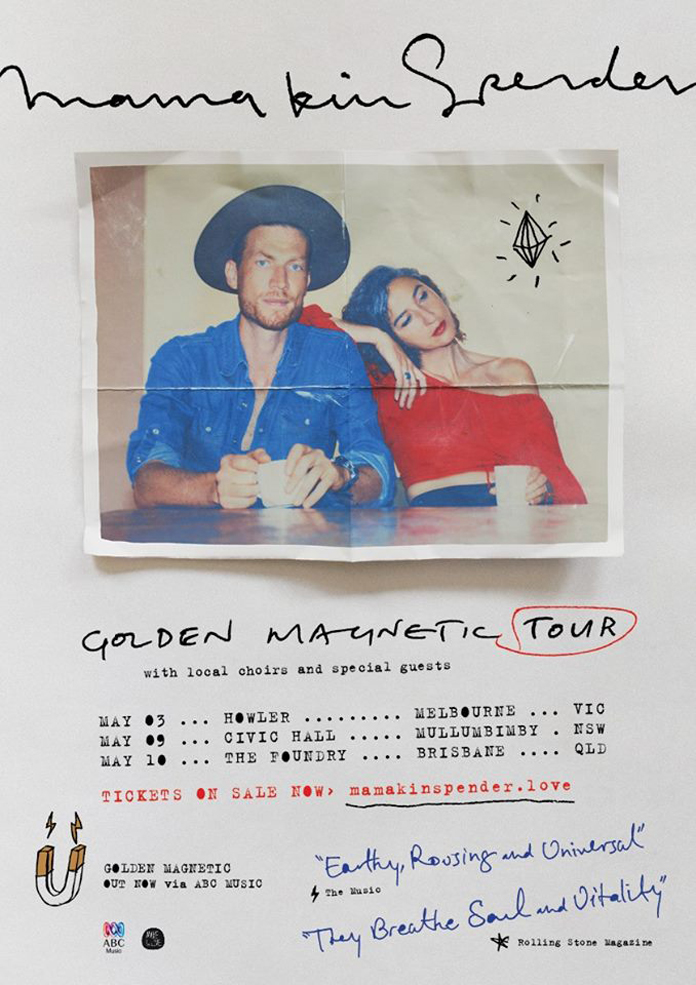 mama kin Spender
GOLDEN MAGNETIC TOUR
with local choirs and special guests
MAY 03 ... HOWLER ......... MELBOURNE ... VIC
MAY 09 ... CIVIC HALL ..... MULLUMBIMBY . NSW
MAY 10 ... THE FOUNDRY .... BRISBANE .... QLD
TICKETS ON SALE NOW> mamakinspender.love
GOLDEN MAGNETIC
OUT NOW via ABC MUSIC
"Earthy, Rousing and Universal"
The Music
"They Breathe Soul and Vitality"
Rolling Stone Magazine
ABC
Music